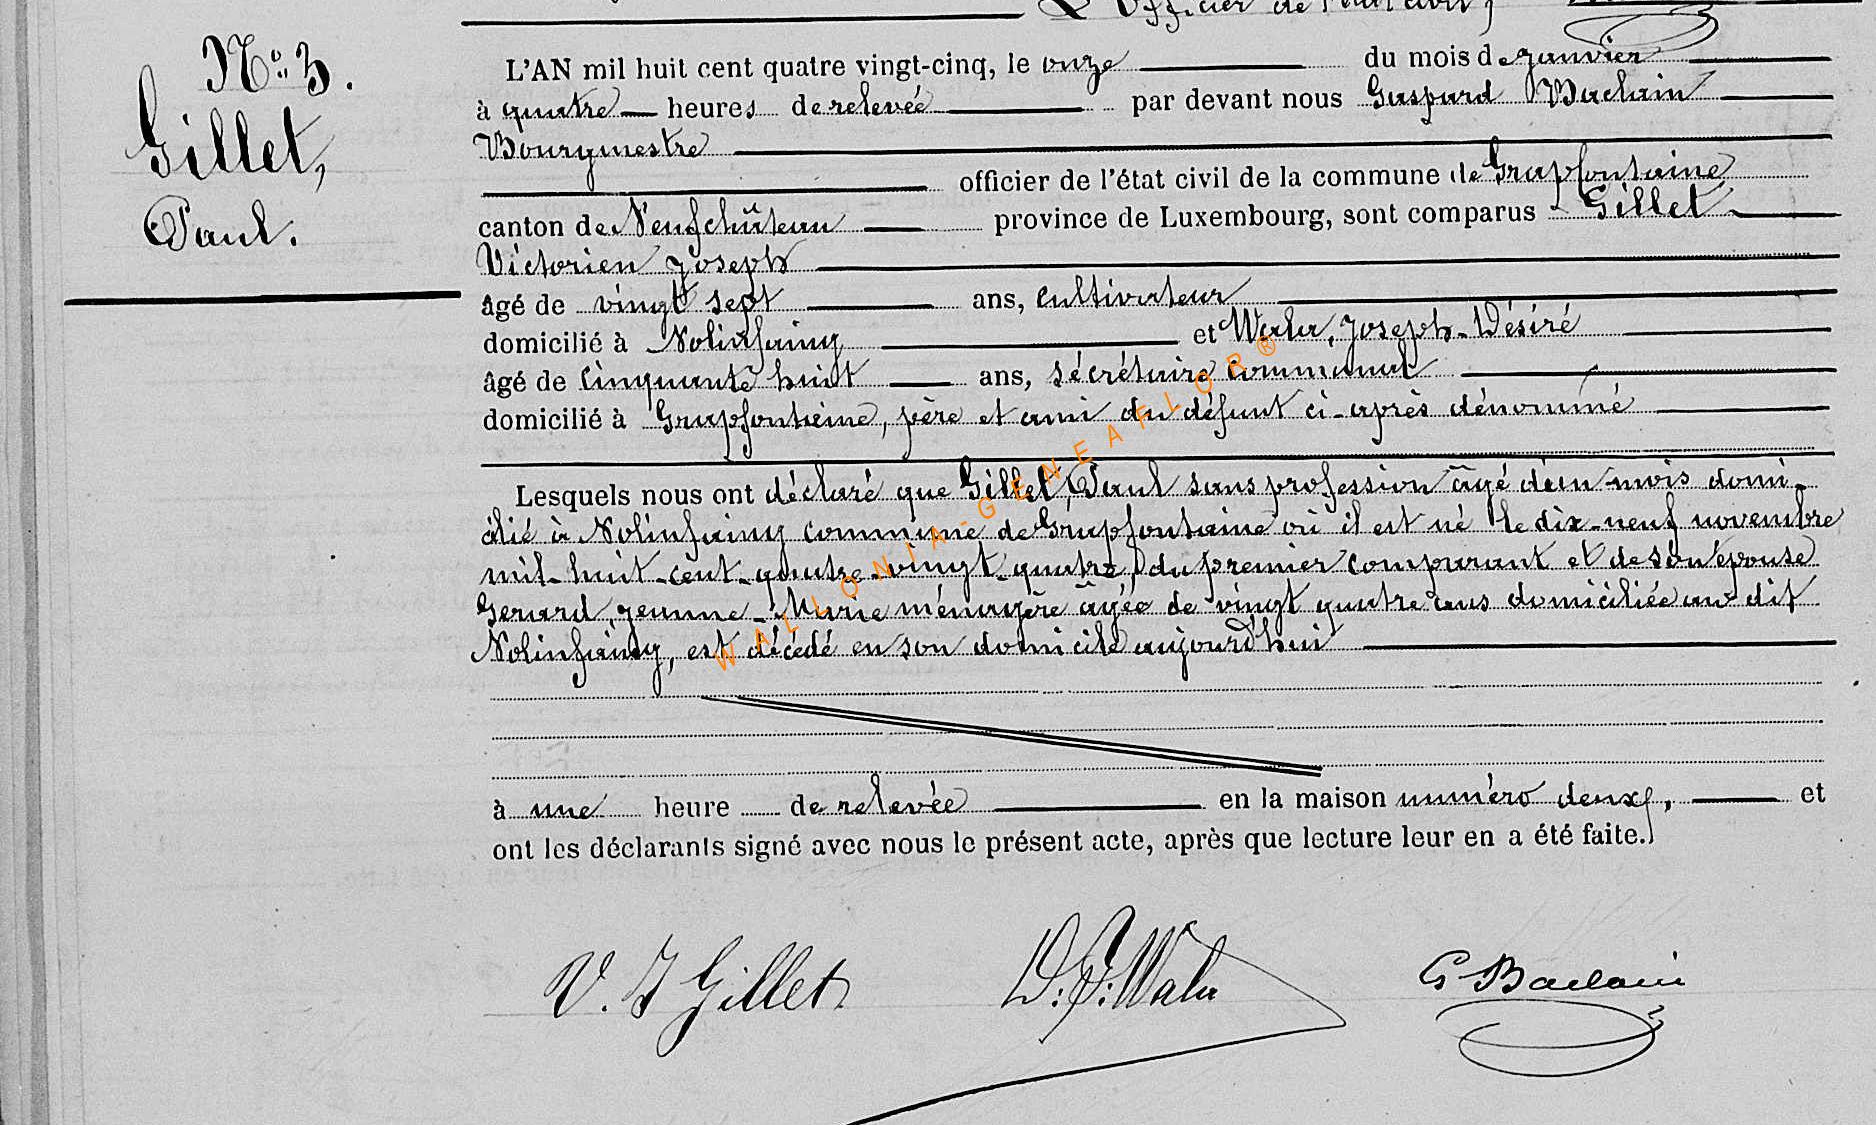 L'Officier de l'état civil,
N° 3.
Gillet,
Paul.
L'AN mil huit cent quatre vingt-cinq, le onze du mois de janvier
à quatre heures de relevée par devant nous Gaspard Baclain
Bourgmestre
officier de l'état civil de la commune de Grapfontaine
canton de Neufchâteau province de Luxembourg, sont comparus Gillet
Victorien Joseph
âgé de vingt sept ans, cultivateur
domicilié à Nolinfaing et Joseph-Désiré
âgé de cinquante huit ans, sécrétaire communal
domicilié à Grapfontaine, père et ami du défunt ci-après dénommé
Lesquels nous ont déclaré que Gillet, Paul sans profession âgé d'un mois domi-
cilié à Nolinfaing commune de Grapfontaine où il est né le dix-neuf novembre
mil-huit-cent-quatre-vingt-quatre, du premier comparant et de son épouse
Gerard, Jeanne-Marie ménagère âgée de vingt quatre ans domiciliée au dit
Nolinfaing, est décédé en son domicile aujourd'hui
à une heure de relevée en la maison numéro deux, et
ont les déclarants signé avec nous le présent acte, après que lecture leur en a été faite.
V. J Gillet D. J. G Baclain
WALLONIA-GENEAFLOR®